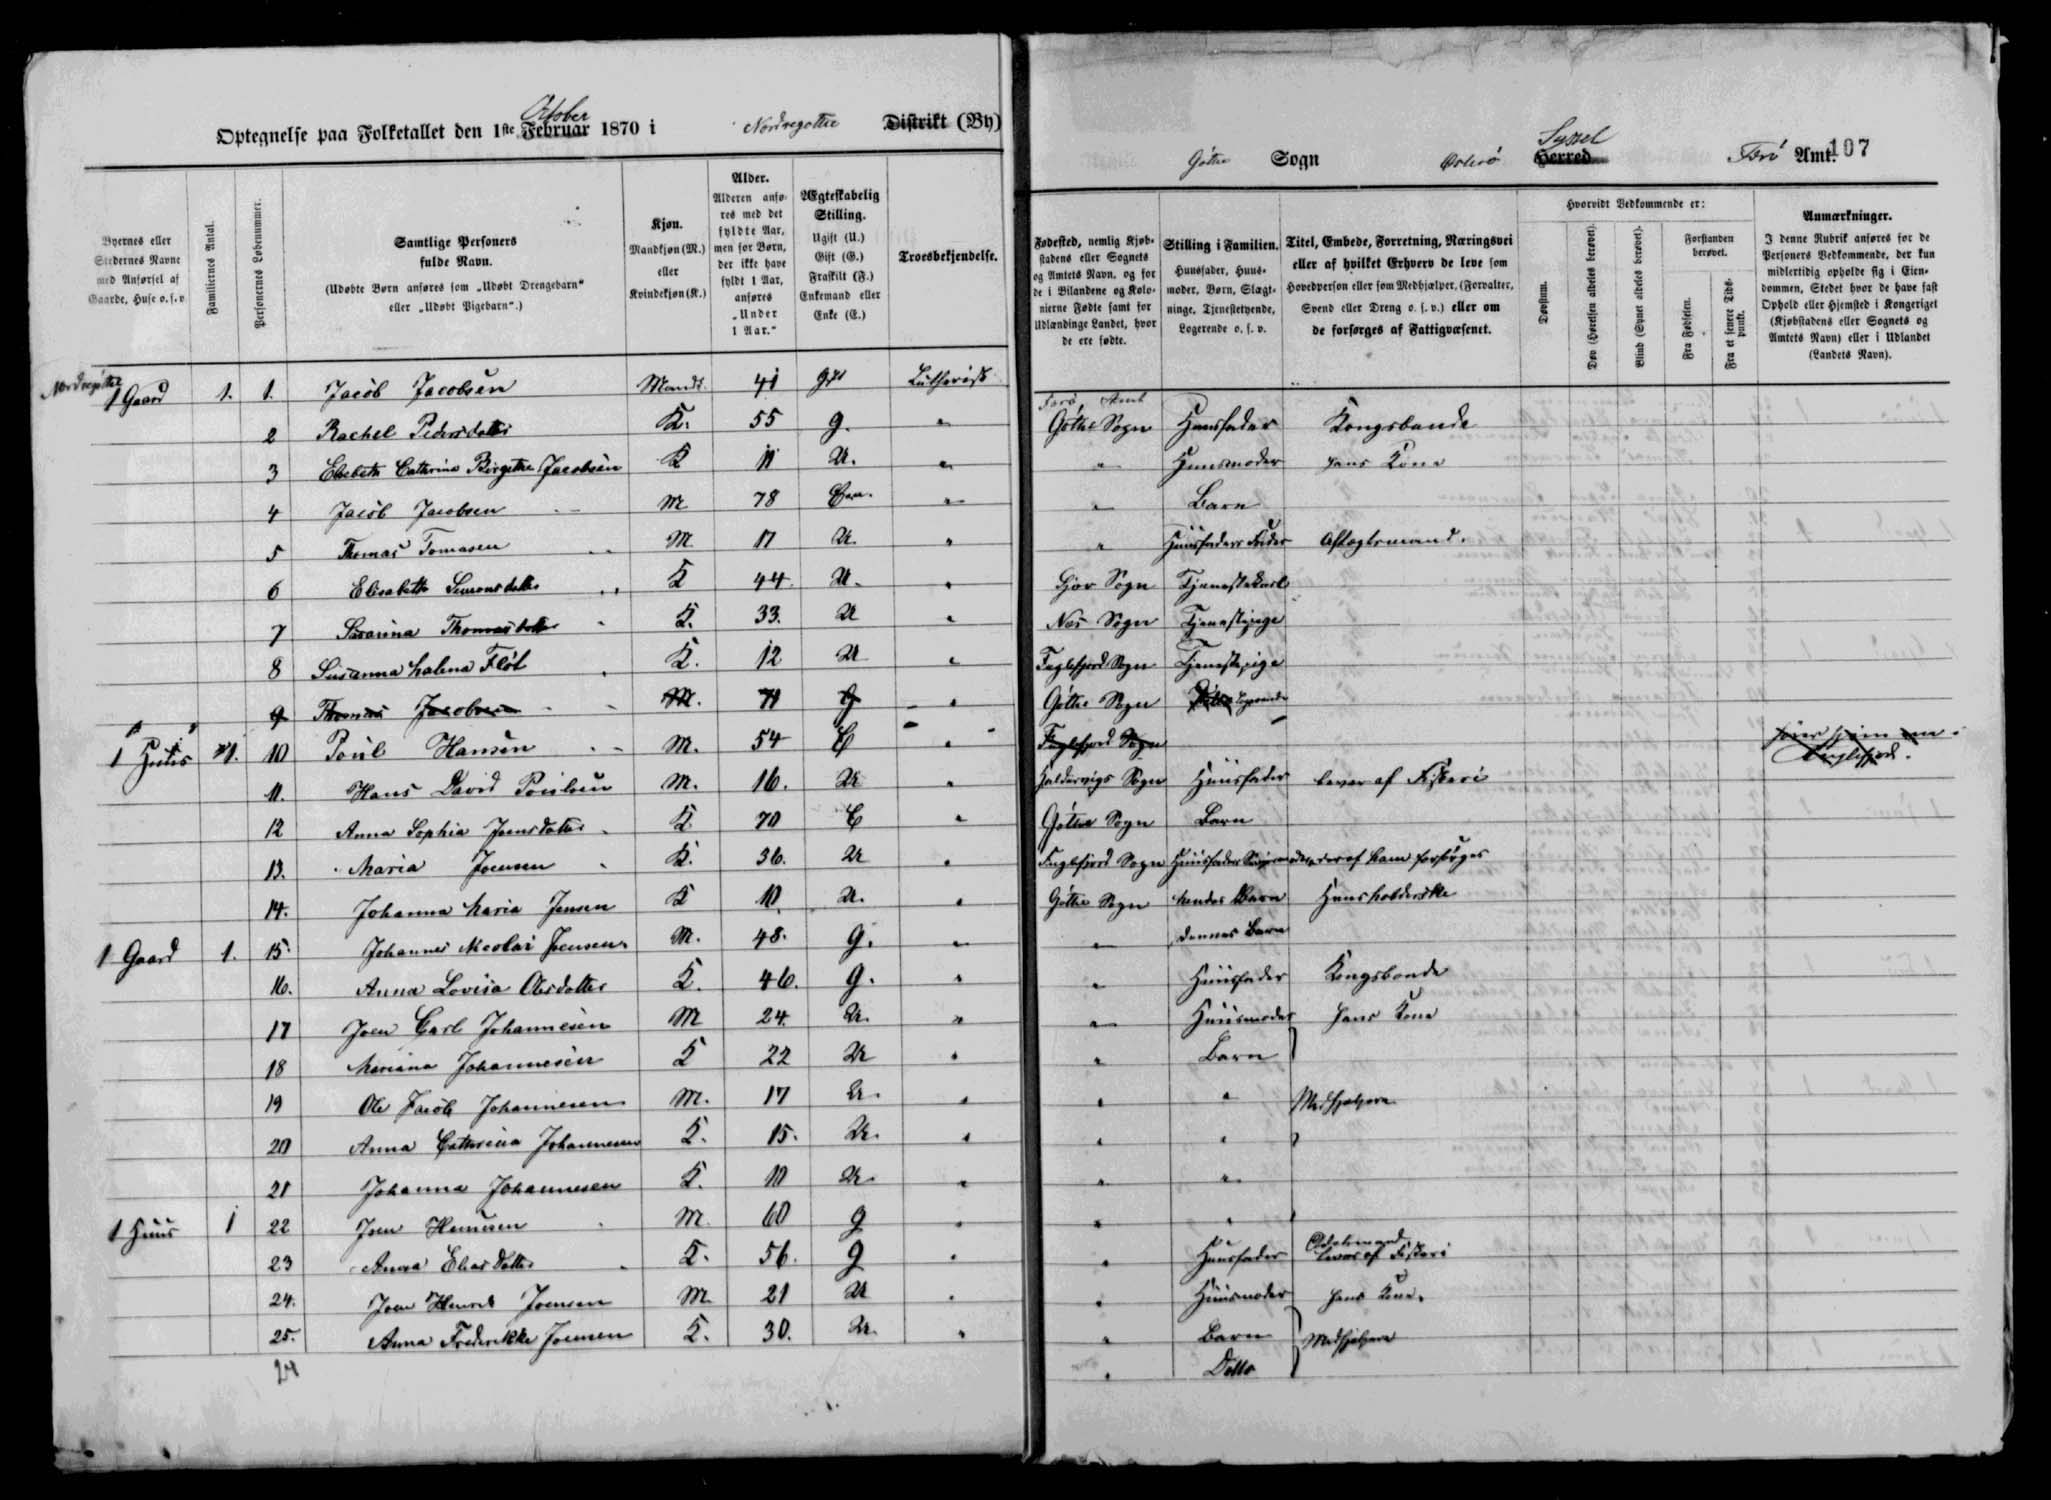 Optegnelse paa Folketallet den 1ste Februar 1870 i Nordregøthe Distrikt (By)
October
Gøthe Sogn Østerø Herred Færø Amt. 107
Syssel
Byernes eller Stedernes Navne med Anførsel af Gaarde, Huse o. s. v.
Familiernes Antal.
Personernes Løbenummer.
Samtlige Personers fulde Navn.
(Udøbte Børn anføres som „Udøbt Drengebarn“ eller „Udøbt Pigebarn“.)
Kjøn.
Mandkjøn (M.) eller Kvindekjøn (K.)
Alder.
Alderen anføres med det fyldte Aar, men for Børn, der ikke have fyldt 1 Aar, anføres „Under 1 Aar.“
Ægteskabelig Stilling.
Ugift (U.) Gift (G.) Fraskilt (F.) Enkemand eller Enke (E.)
Troesbekjendelse.
Fødested, nemlig Kjøbstadens eller Sognets og Amtets Navn, og for de i Bilandene og Kolonierne Fødte samt for Udlændinge Landet, hvor de ere fødte.
Stilling i Familien.
Huusfader, Huusmoder, Børn, Slægtninge, Tjenestetyende, Logerende o. s. v.
Titel, Embede, Forretning, Næringsvei eller af hvilket Erhverv de leve som Hovedperson eller som Medhjælper, (Forvalter, Svend eller Dreng o. s. v.) eller om de forsørges af Fattigvæsenet.
Hvorvidt Vedkommende er:
Døvstum.
Døv (Hørelsen aldeles berøvet).
Blind (Synet aldeles berøvet).
Forstanden berøvet.
Fra Fødselen.
Fra et senere Tidspunkt.
Anmærkninger.
I denne Rubrik anføres for de Personers Vedkommende, der kun midlertidig opholde sig i Eiendommen, Stedet hvor de have fast Ophold eller Hjemsted i Kongeriget (Kjøbstadens eller Sognets og Amtets Navn) eller i Udlandet (Landets Navn).
Nordregøthe
1 Gaard 1. 1. Jacob Jacobsen Mandk. 41 Gift Luthersk
2 Rachel Pedersdatter K. 55 G. "
3 Elsebeth Cathrina Birgethe Jacobsen K 11 U. "
4 Jacob Jacobsen M 78 "
5 Thomas Tomasen M. 17 U. "
6 Elisabeth Simonsdatter K 44. U. "
7 Sararina Thomasdatter K. 33. U "
8 Susanna Malena Fløt K. 12 U "
9 Thomas Jacobsen M. 71 G "
1 Huus 1. 10 Poul Hansen M. 54 E "
11. Hans David Poulsen M. 16. U "
12 Anna Sophia Joensdatter K 70 E "
13. Maria Joensen K. 36. U "
14. Johanna Maria Jensen K 10 U. "
1 Gaard 1. 15. Johannes Nicolai Joensen. M. 48. G. "
16. Anna Lovisa Olesdatter K. 46. G. "
17 Joen Carl Johannesen M 24. U. "
18 Mariana Johannesen K 22 U "
19 Ole Jacob Johannesen M. 17 U. "
20 Anna Cathrina Johannesen K. 15. U. "
21 Johanna Johannesen K. 10 U. "
1 Huus 1 22 Joen Hansen M. 60 G "
23 Anna Eliasdatter K. 56. G "
24. Joen Henrik Joensen M 21 U "
25. Anna Frederikke Joensen K. 30. U. "
24
Færø Amt
Gøthe Sogn Huusfader Kongsbonde
" Huusmoder hans Kone
" Barn
" Huusfaders Fader Aftægtsmand.
Gjov Sogn Tjenestekarl
Næs Sogn Tjenestepige
Fuglefjord Sogn Tjenestepige
Gøthe Sogn Logerende
Fuglefjord Sogn
Fuglefjord.
Haldervigs Sogn Huusfader lever af Fiskeri
Gøthe Sogn Barn
Fuglefjord Sogn Huusfaders Svigermoder, der af ham forsørges
Gøthe Sogn hendes Barn Huusholderske
" dennes Barn
" Huusfader Kongsbonde
" Huusmoder hans Kone
" Barn
" " Medhjælpere
" "
" "
" "
" Huusfader Odelsmand lever af Fiskeri
" Huusmoder hans Kone.
" Barn Medhjælpere
" Ditto